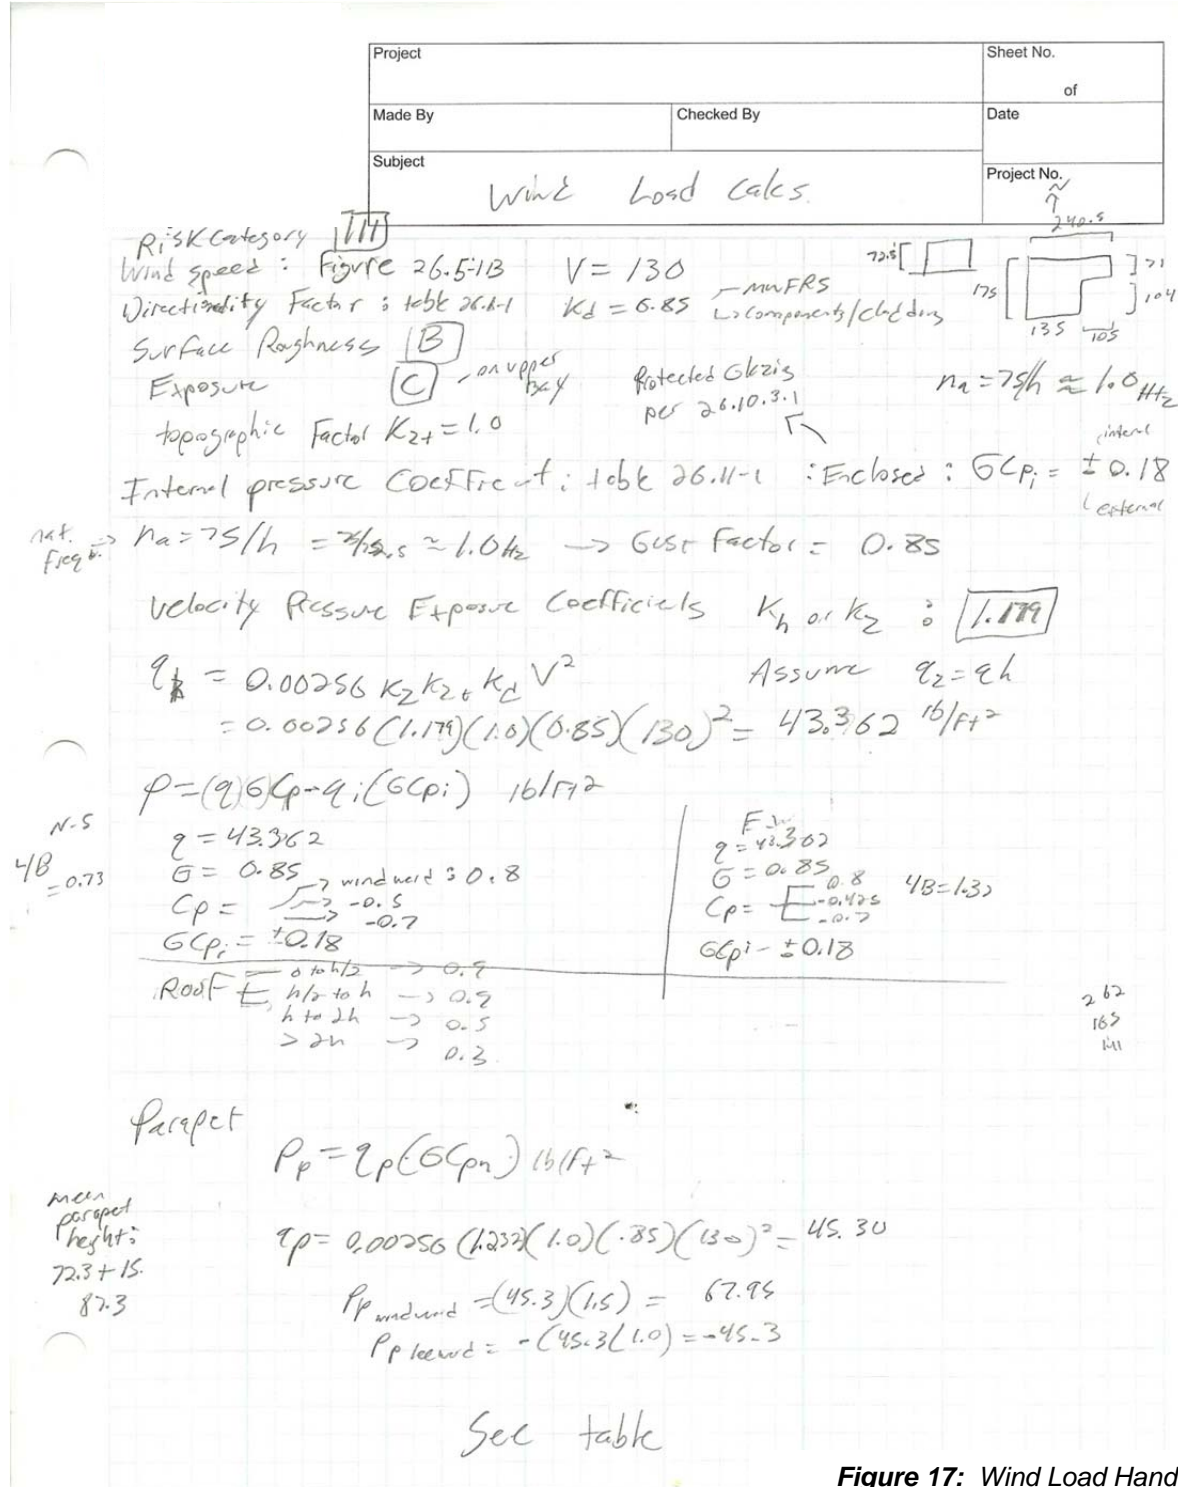 Project
Sheet No.
of
Made By
Checked By
Date
Subject
Wind Load Calcs.
Project No.
N
↑
240.5
Risk Category III
72.5
175
71
104
135
105
Wind speed : Figure 26.5-1B V = 130
Directionality Factor : table 26.6-1 Kd = 0.85 - MWFRS
↳ Components/cladding
Surface Roughness B
Exposure C - on upper Bay
Protected Glazing per 26.10.3.1
na = 75/h ≈ 1.0 Hz
topographic Factor Kzt = 1.0
Internal pressure Coefficient : table 26.11-1 : Enclosed : GCpi = ± 0.18
internal
external
nat. freq. → na = 75/h = 75/72.5 ≈ 1.0 Hz → Gust Factor = 0.85
Velocity Pressure Exposure Coefficients Kh or Kz : 1.179
qz = 0.00256 Kz Kzt Kd V² Assume qz = qh
= 0.00256 (1.179)(1.0)(0.85)(130)² = 43.362 lb/ft²
P = (q)GCp - qi(GCpi) lb/ft²
N-S
L/B = 0.73
q = 43.362
G = 0.85
Cp = → windward : 0.8
→ -0.5
→ -0.7
GCpi = ±0.18
E-W
q = 43.362
G = 0.85
Cp = 0.8
-0.425
-0.7
L/B = 1.37
GCpi - ±0.18
Roof 0 to h/2 → 0.9
h/2 to h → 0.9
h to 2h → 0.5
> 2h → 0.3
262
165
141
Parapet
Pp = qp(GCpn) lb/ft²
mean
parapet
height:
72.3 + 15.
87.3
qp = 0.00256 (1.232)(1.0)(.85)(130)² = 45.30
Pp windward = (45.3)(1.5) = 67.95
Pp leeward = -(45.3(1.0) = -45.3
See table
Figure 17: Wind Load Hand